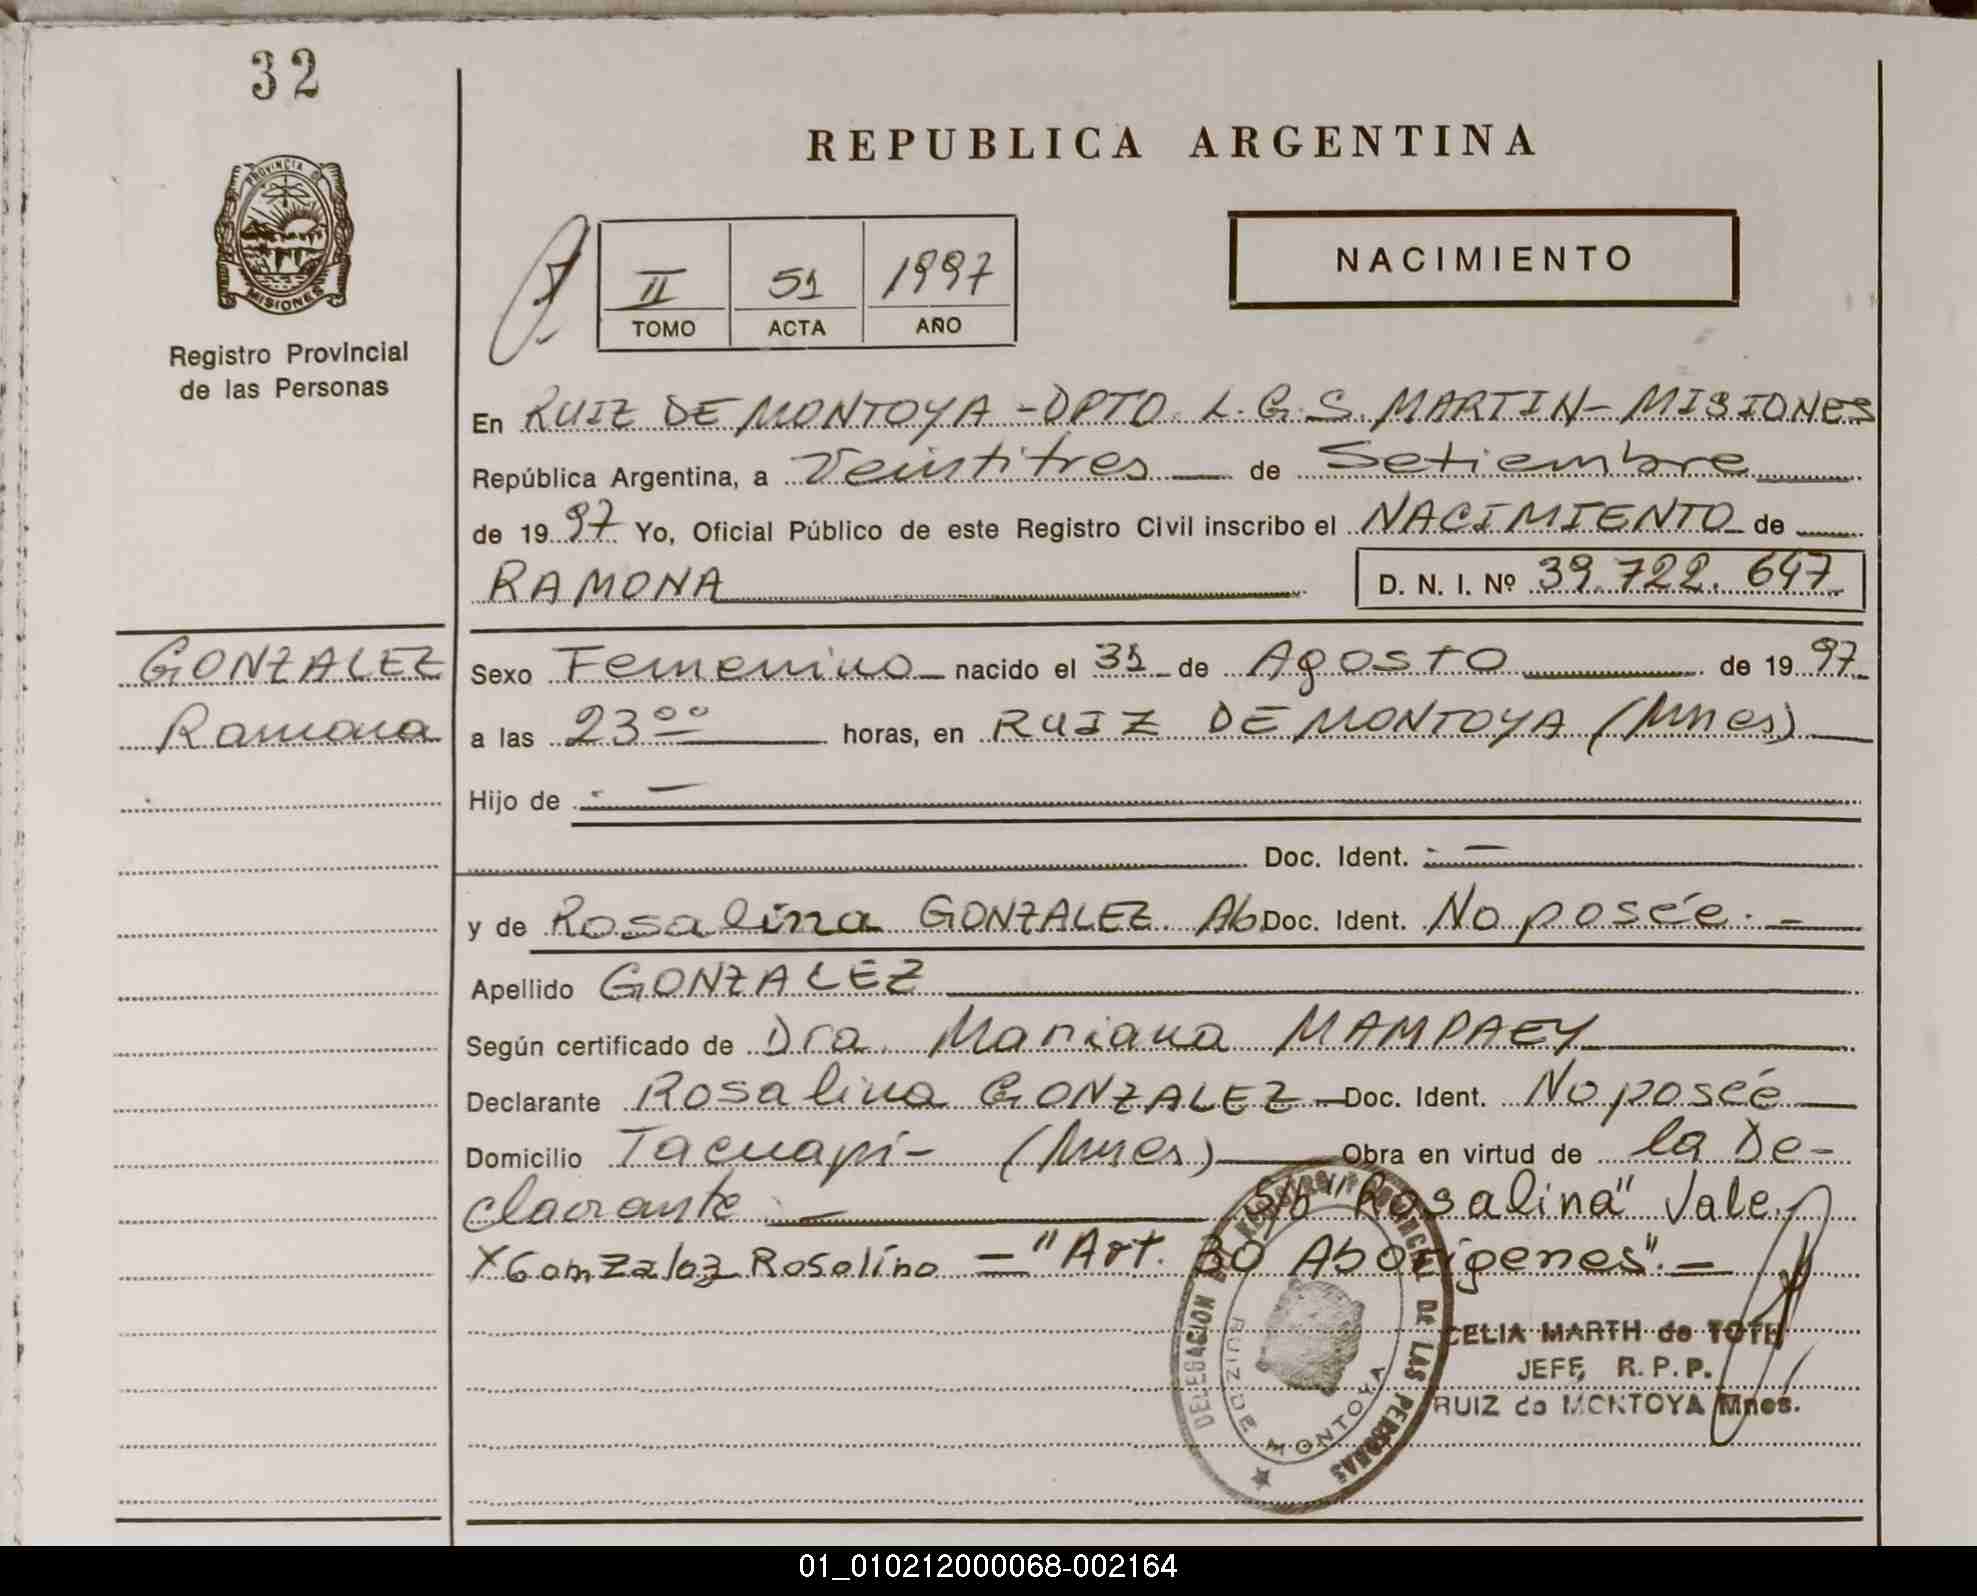 32
REPUBLICA ARGENTINA
PROVINCIA DE
MISIONES
Registro Provincial
de las Personas
II 51 1997
TOMO ACTA AÑO
NACIMIENTO
En RUIZ DE MONTOYA - DPTO. L. G. S. MARTIN - MISIONES
República Argentina, a Veintitres de Setiembre
de 1997 Yo, Oficial Público de este Registro Civil inscribo el NACIMIENTO de
RAMONA D. N. I. Nº 39.722.647.
GONZALEZ
Ramona
Sexo Femenino nacido el 31 de Agosto de 1997
a las 23 ºº horas, en RUIZ DE MONTOYA (Mnes)
Hijo de . —
Doc. Ident. . —
y de Rosalina GONZALEZ. Ab Doc. Ident. No posée. —
Apellido GONZALEZ
Según certificado de Dra. Mariana MAMPAEY
Declarante Rosalina GONZALEZ — Doc. Ident. No posée
Domicilio Tacuapí - (Mnes) Obra en virtud de la De-
clarante — S/b "Rosalina" Vale.
X Gomzalez Rosalino = "Art. 30 Aborígenes". —
DELEGACION DE LAS PERSONAS
RUIZ DE MONTOYA
CELIA MARTH de TOTH
JEFE, R. P. P.
RUIZ de MONTOYA Mnes.
01_010212000068-002164